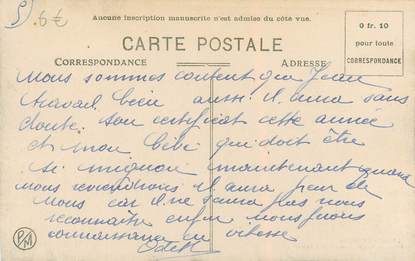 6€
Aucune inscription manuscrite n'est admise du côté vue.
CARTE POSTALE
0 fr. 10
pour toute
CORRESPONDANCE
CORRESPONDANCE
ADRESSE
Nous sommes content que Jean
travail bien aussi il aura sans
doute son certificat cette année
et mon Bébé qui doit être
si mignon maintenant quand
nous reviendrons il aura peur de
nous car il ne saura pas nous
reconnaitre enfin nous ferons
connaissance en vitesse
Odette
PM